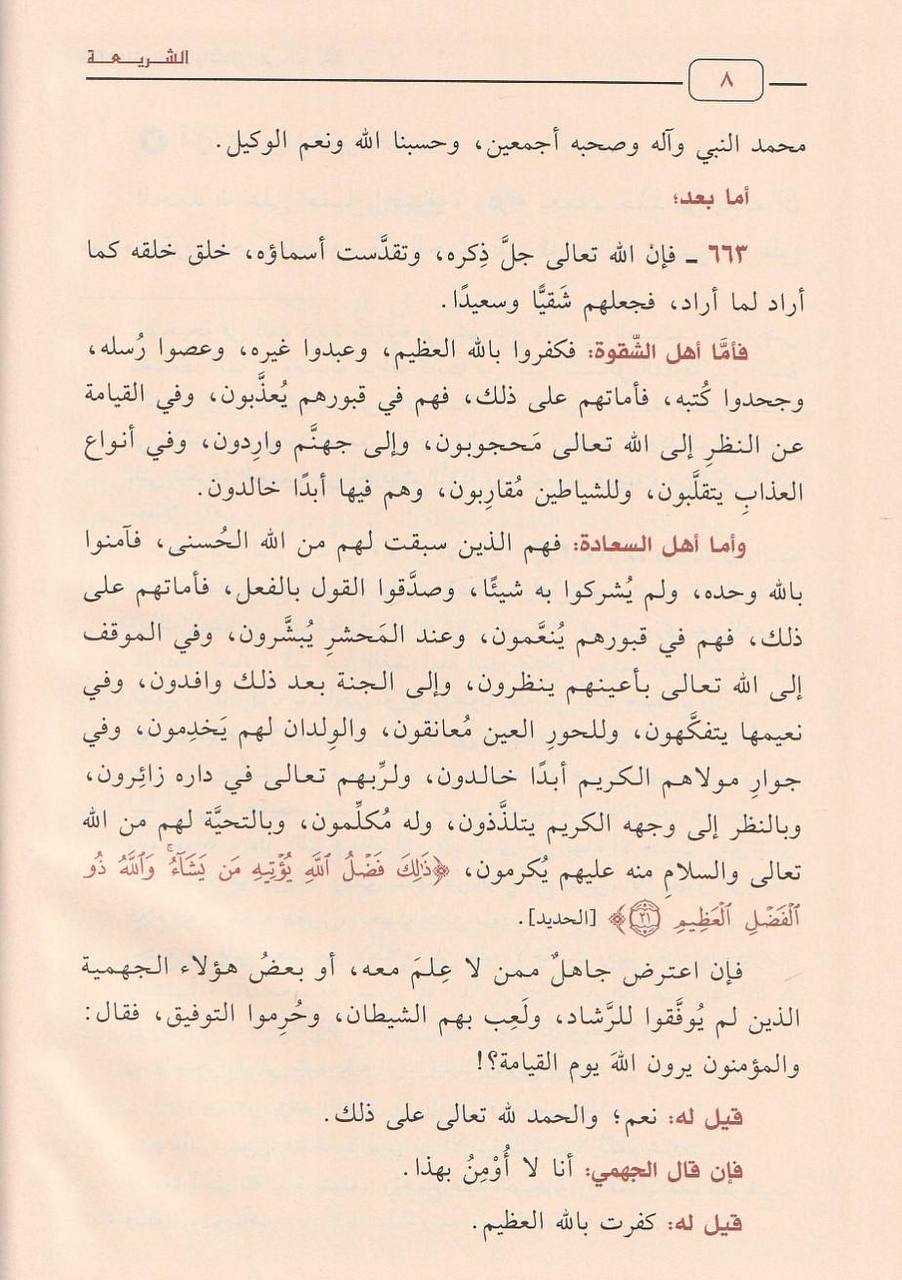 الشريعة
٨
محمد النبي وآله وصحبه أجمعين، وحسبنا الله ونعم الوكيل.
أما بعد؛
٦٦٣ ـ فإن الله تعالى جلَّ ذِكره، وتقدَّست أسماؤه، خلق خلقه كما
أراد لما أراد، فجعلهم شَقيًّا وسعيدًا.
فأمَّا أهل الشّقوة: فكفروا بالله العظيم، وعبدوا غيره، وعصوا رُسله،
وجحدوا كُتبه، فأماتهم على ذلك، فهم في قبورهم يُعذَّبون، وفي القيامة
عن النظرِ إلى الله تعالى مَحجوبون، وإلى جهنَّم وارِدون، وفي أنواع
العذابِ يتقلَّبون، وللشياطين مُقارِبون، وهم فيها أبدًا خالدون.
وأما أهل السعادة: فهم الذين سبقت لهم من الله الحُسنى، فآمنوا
بالله وحده، ولم يُشركوا به شيئًا، وصدَّقوا القول بالفعل، فأماتهم على
ذلك، فهم في قبورهم يُنعَّمون، وعند المَحشرِ يُبشَّرون، وفي الموقف
إلى الله تعالى بأعينهم ينظرون، وإلى الجنة بعد ذلك وافدون، وفي
نعيمها يتفكَّهون، وللحورِ العين مُعانقون، والوِلدان لهم يَخدِمون، وفي
جوارِ مولاهم الكريم أبدًا خالدون، ولربِّهم تعالى في داره زائِرون،
وبالنظر إلى وجهه الكريم يتلذَّذون، وله مُكلِّمون، وبالتحيَّة لهم من الله
تعالى والسلامِ منه عليهم يُكرمون، ﴿ذَٰلِكَ فَضۡلُ ٱللَّهِ يُؤۡتِيهِ مَن يَشَآءُۚ وَٱللَّهُ ذُو
ٱلۡفَضۡلِ ٱلۡعَظِيمِ ٢١﴾ [الحديد].
فإن اعترض جاهلٌ ممن لا عِلمَ معه، أو بعضُ هؤلاء الجهمية
الذين لم يُوفَّقوا للرَّشاد، ولَعِب بهم الشيطان، وحُرِموا التوفيق، فقال:
والمؤمنون يرون اللهَ يوم القيامة؟!
قيل له: نعم؛ والحمد لله تعالى على ذلك.
فإن قال الجهمي: أنا لا أُوْمِنُ بهذا.
قيل له: كفرت بالله العظيم.